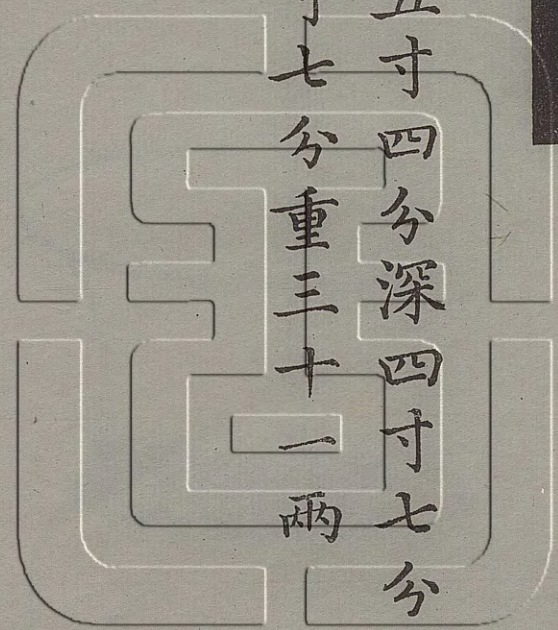 五寸四分深四寸七分
寸七分重三十一兩